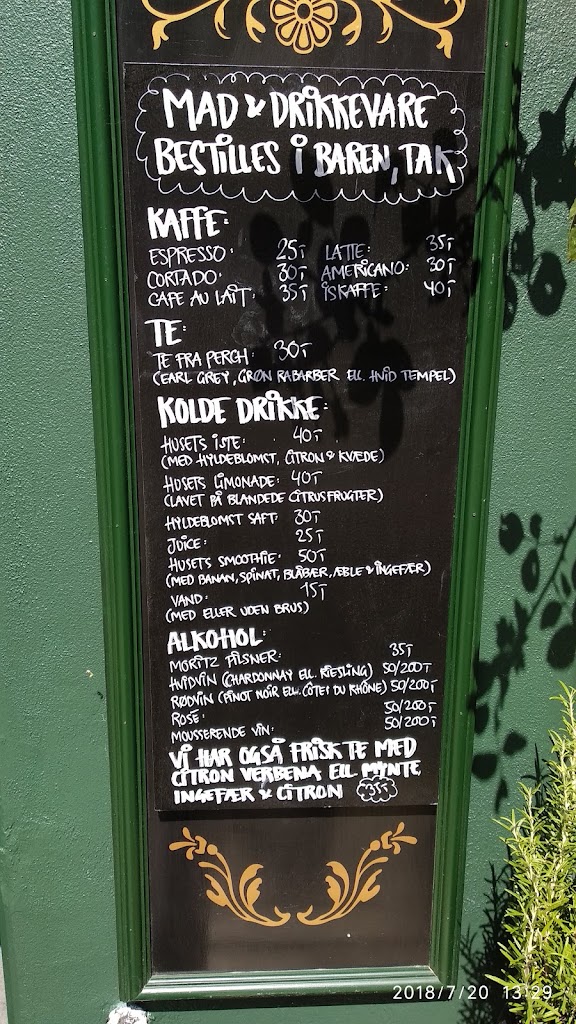 MAD & DRIKKEVARE
BESTILLES I BAREN, TAK
KAFFE:
ESPRESSO: 25,- LATTE: 35,-
CORTADO: 30,- AMERICANO: 30,-
CAFE AU LAIT: 35,- ISKAFFE: 40,-
TE:
TE FRA PERCH: 30,-
(EARL GREY, GRØN RABARBER ELL. HVID TEMPEL)
KOLDE DRIKKE:
HUSETS ISTE: 40,-
(MED HYLDEBLOMST, CITRON & KVÆDE)
HUSETS LIMONADE: 40,-
(LAVET PÅ BLANDEDE CITRUSFRUGTER)
HYLDEBLOMST SAFT: 30,-
JUICE: 25,-
HUSETS SMOOTHIE: 50,-
(MED BANAN, SPINAT, BLÅBÆR, ÆBLE & INGEFÆR)
VAND: 15,-
(MED ELLER UDEN BRUS)
ALKOHOL:
MORITZ PILSNER: 35,-
HVIDVIN (CHARDONNAY ELL. RIESLING) 50/200,-
RØDVIN (PINOT NOIR ELL. CÔTES DU RHÔNE) 50/200,-
ROSÉ: 50/200,-
MOUSSERENDE VIN: 50/200,-
VI HAR OGSÅ FRISK TE MED
CITRON VERBENA ELL. MYNTE,
INGEFÆR & CITRON 35,-
2018/7/20 13:29